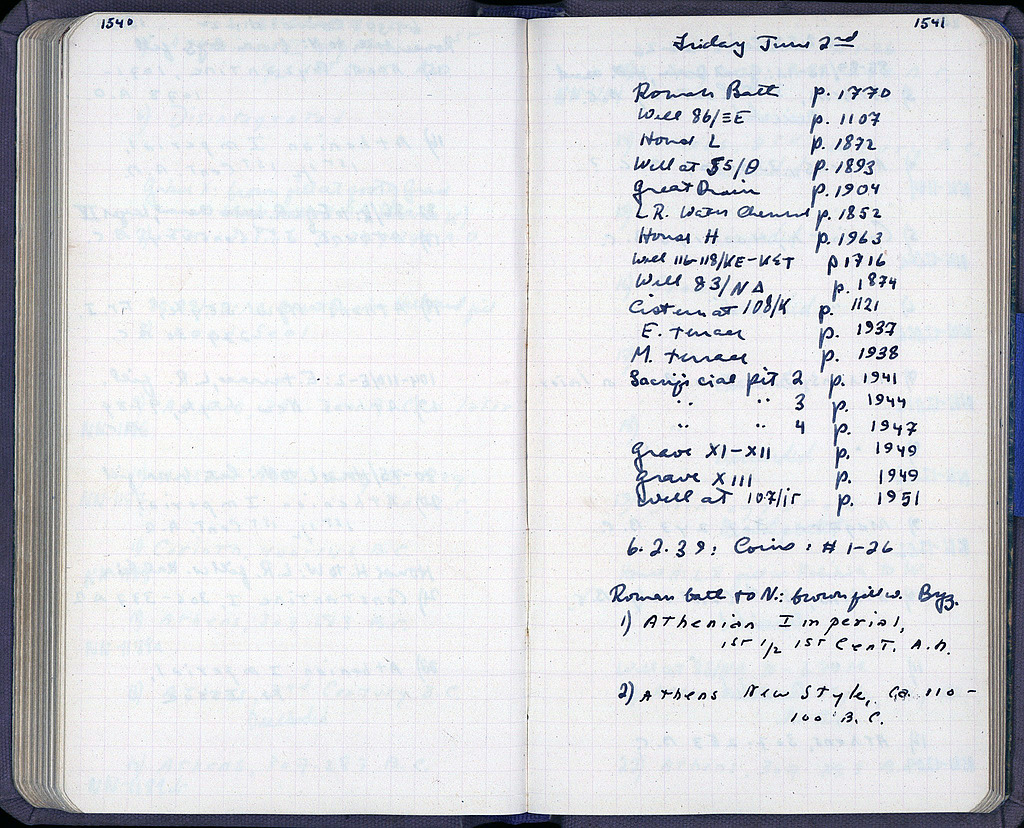 1540
1541
Friday June 2nd
Roman Bath p. 1770
Well 86/ΞE p. 1107
House L p. 1872
Well at 55/Θ p. 1893
Great Drain p. 1904
L.R. Water Channel p. 1852
House H p. 1963
Well 116-118/KE-KΣT p 1716
Well 83/NΔ p. 1874
Cistern at 108/K p. 1121
E. terrace p. 1937
M. terrace p. 1938
Sacrificial pit 2 p. 1941
" " 3 p. 1944
" " 4 p. 1947
Grave XI-XII p. 1949
Grave XIII p. 1949
Well at 107/ p. 1951
6.2.39: Coins: #1-26
Roman bath to N: brown fill w. Byz.
1) Athenian Imperial,
1st 1/2 1st Cent. A.D.
2) Athens New Style, Ca 110-
100 B.C.